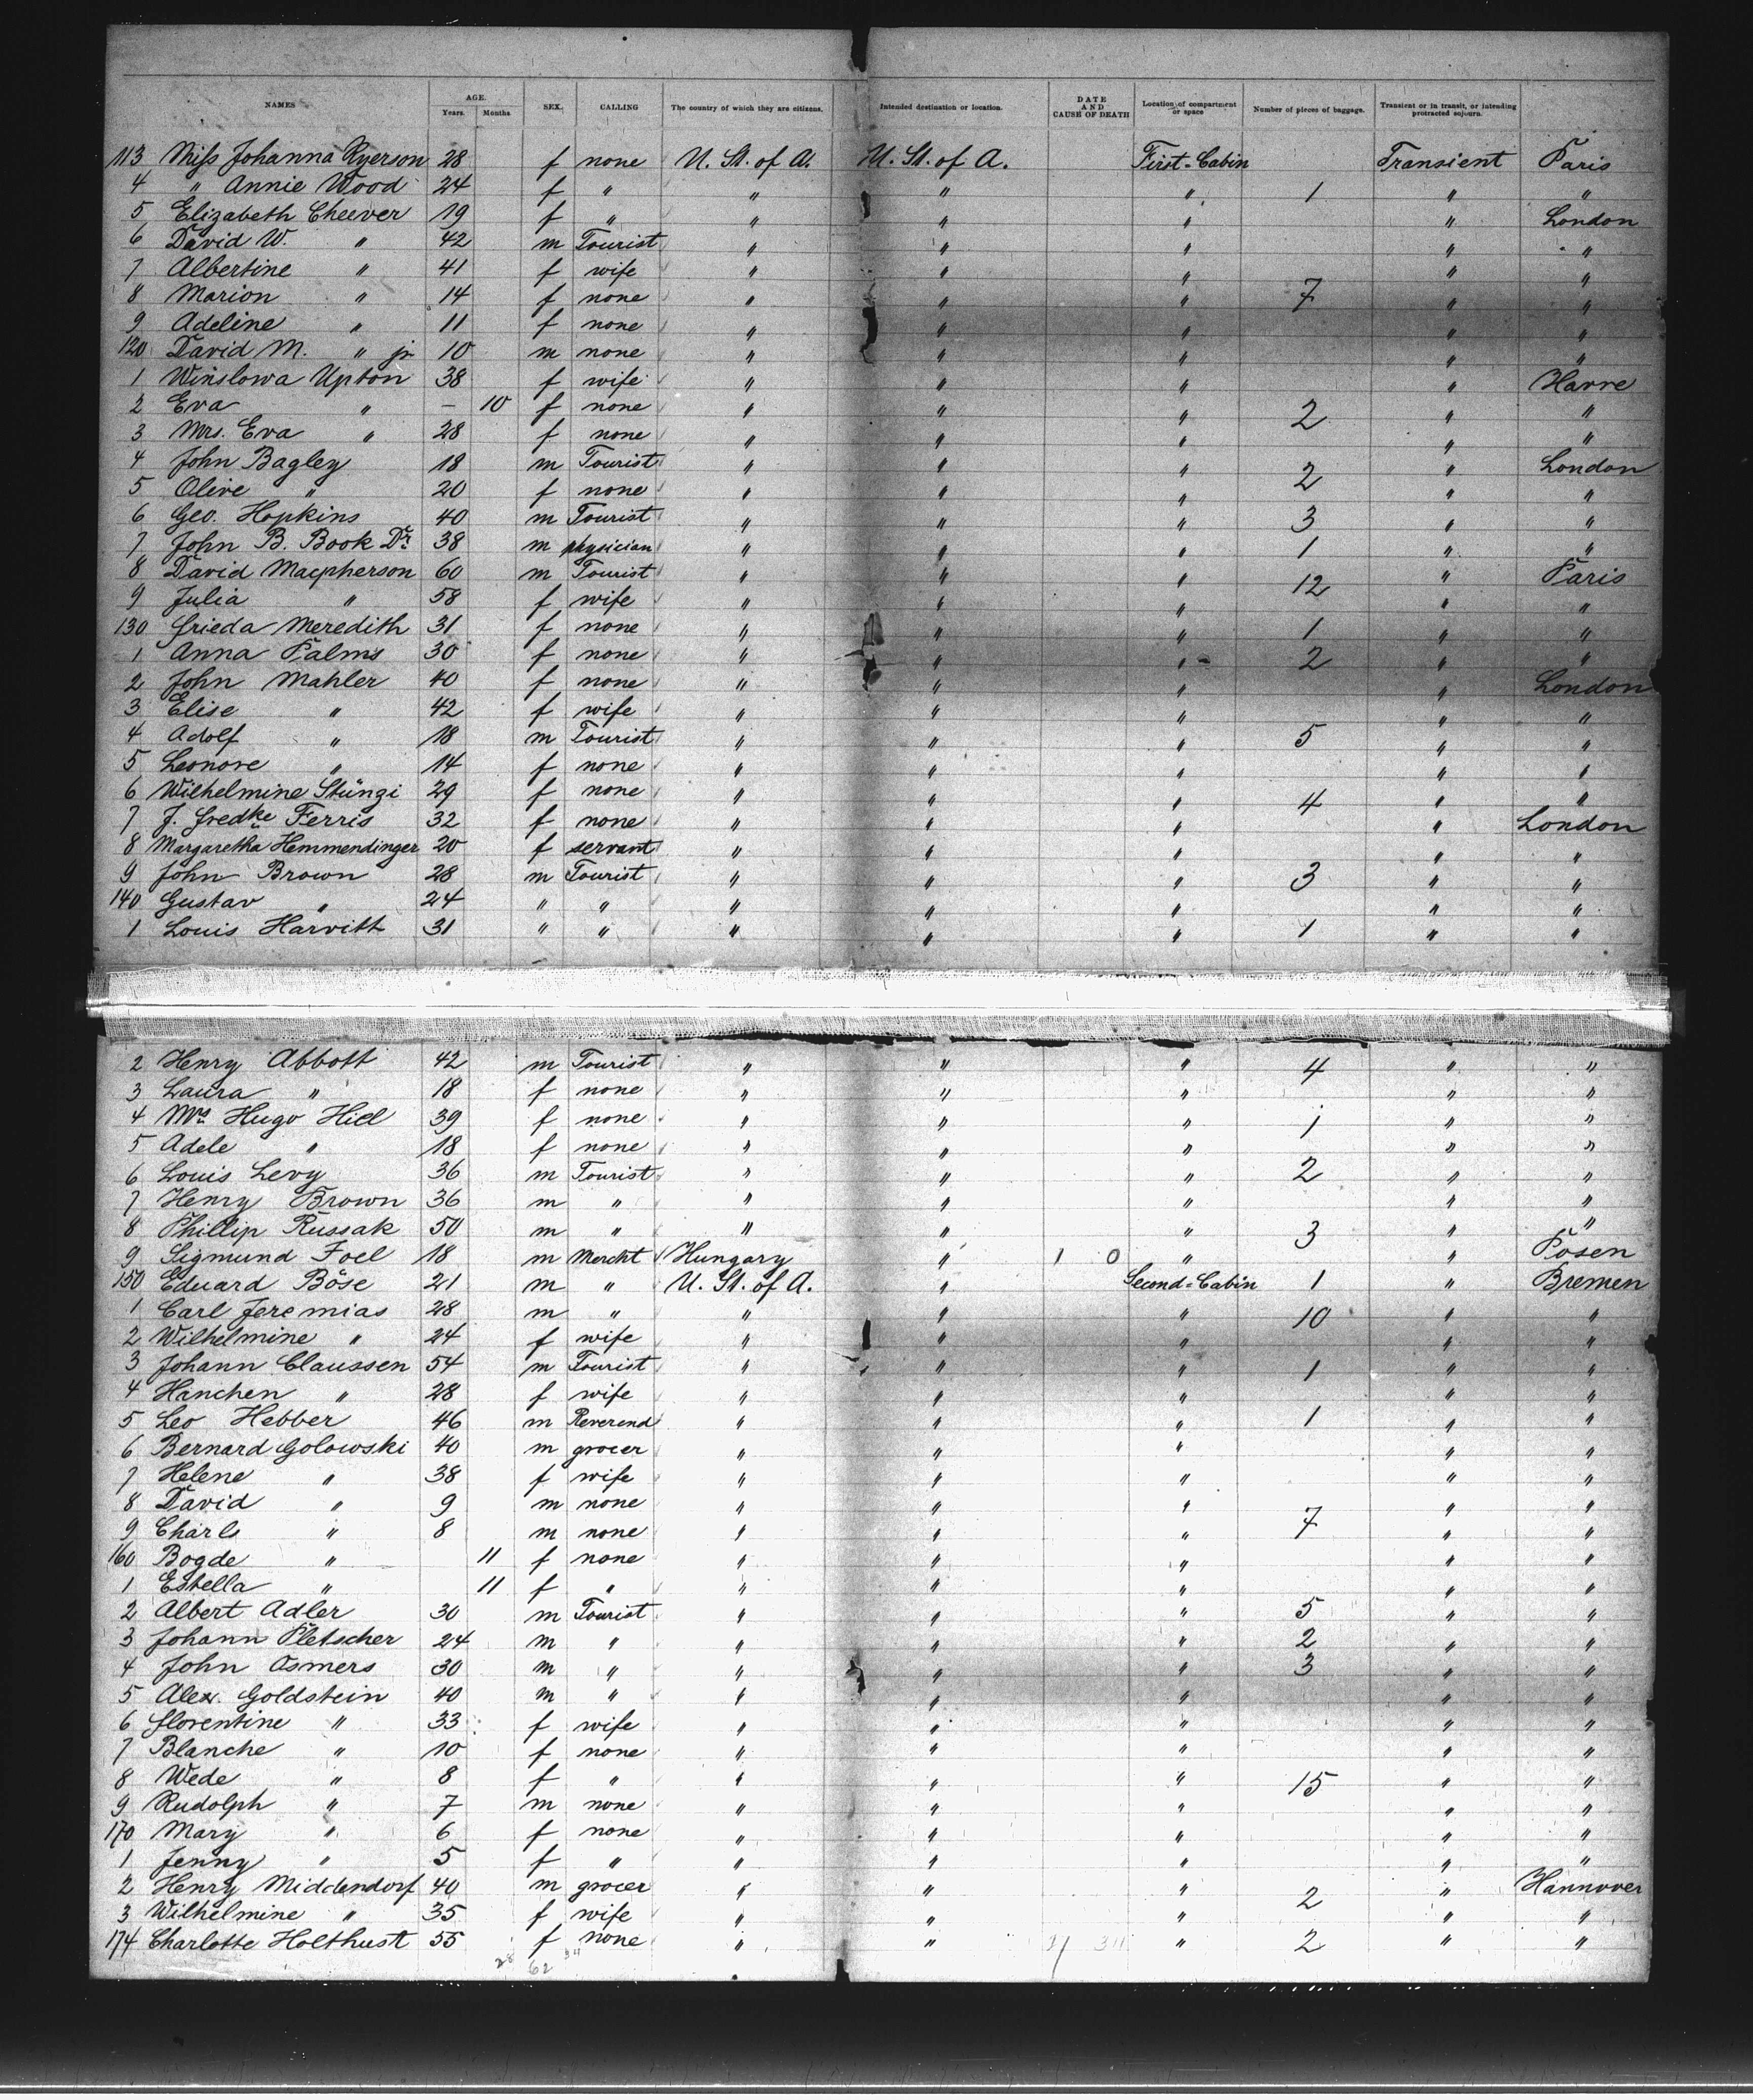 NAMES AGE. Years. Months. SEX. CALLING The country of which they are citizens. Intended destination or location. DATE AND CAUSE OF DEATH Location of compartment or space Number of pieces of baggage. Transient or in transit, or intending protracted sojourn.
113 Miss Johanna Ryerson 28 f none U. St. of A. U. St. of A. First-Cabin Transient Paris
4 " Annie Wood 24 f " " " " 1 " "
5 Elizabeth Cheever 19 f " " " " " London
6 David W. " 42 m Tourist " " " " "
7 Albertine " 41 f wife " " " " "
8 Marion " 14 f none " " " 7 " "
9 Adeline " 11 f none " " " " "
120 David M. " jr 10 m none " " " " "
1 Winslowa Upton 38 f wife " " " " Havre
2 Eva " – 10 f none " " " 2 " "
3 Mrs. Eva " 28 f none " " " " "
4 John Bagley 18 m Tourist " " " 2 " London
5 Olive " 20 f none " " " " "
6 Geo. Hopkins 40 m Tourist " " " 3 " "
7 John B. Book Dr. 38 m physician " " " 1 " "
8 David Macpherson 60 m Tourist " " " 12 " Paris
9 Julia " 58 f wife " " " " "
130 Frieda Meredith 31 f none " " " 1 " "
1 Anna Palms 30 f none " " " 2 " "
2 John Mahler 40 f none " " " " London
3 Elise " 42 f wife " " " " "
4 Adolf " 18 m Tourist " " " 5 " "
5 Leonore " 14 f none " " " " "
6 Wilhelmine Stüngi 29 f none " " " 4 " "
7 J. Fredke Ferris 32 f none " " " " London
8 Margaretha Hemmendinger 20 f servant " " " " "
9 John Brown 28 m Tourist " " " 3 " "
140 Gustav " 24 " " " " " " "
1 Louis Harvitt 31 " " " " " 1 " "
2 Henry Abbott 42 m Tourist " " " 4 " "
3 Laura " 18 f none " " " " "
4 Mrs Hugo Hill 39 f none " " " 1 " "
5 Adele " 18 f none " " " " "
6 Louis Levy 36 m Tourist " " " 2 " "
7 Henry Brown 36 m " " " " " "
8 Phillip Russak 50 m " " " " 3 " "
9 Sigmund Foel 18 m Mercht Hungary " 1 0 " " Posen
150 Eduard Böse 21 m " U. St. of A. " Second-Cabin 1 " Bremen
1 Carl Jeremias 28 m " " " " 10 " "
2 Wilhelmine " 24 f wife " " " " "
3 Johann Claussen 54 m Tourist " " " 1 " "
4 Hanchen " 28 f wife " " " " "
5 Leo Hebber 46 m Reverend " " " 1 " "
6 Bernard Golowski 40 m grocer " " " " "
7 Helene " 38 f wife " " " " "
8 David " 9 m none " " " 7 " "
9 Charls " 8 m none " " " " "
160 Bogde " 11 f none " " " " "
1 Estella " 11 f " " " " " "
2 Albert Adler 30 m Tourist " " " 5 " "
3 Johann Pletscher 24 m " " " " 2 " "
4 John Osmers 30 m " " " " 3 " "
5 Alex. Goldstein 40 m " " " " " "
6 Florentine " 33 f wife " " " " "
7 Blanche " 10 f none " " " " "
8 Wede " 8 f " " " " 15 " "
9 Rudolph " 7 m none " " " " "
170 Mary " 6 f none " " " " "
1 Jenny " 5 f " " " " " "
2 Henry Middendorf 40 m grocer " " " 2 " Hannover
3 Wilhelmine " 35 f wife " " " " "
174 Charlotte Holthust 55 f none " " " 2 " "
28 62 34